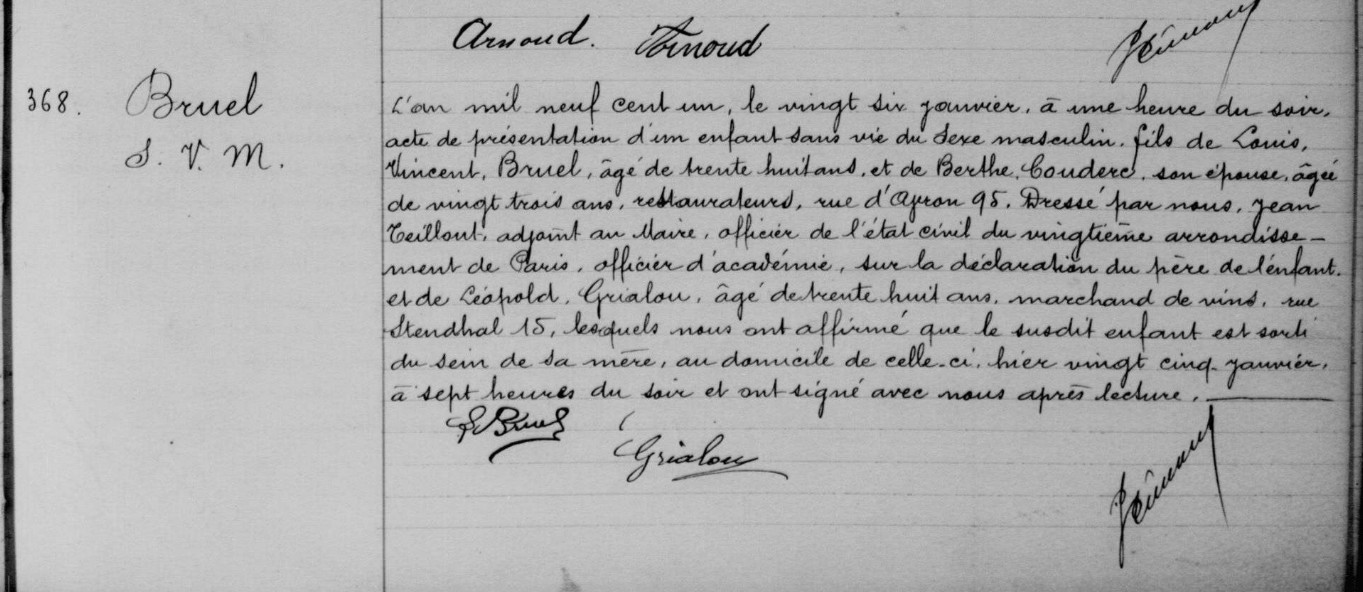 Arnoud. Arnoud
368. Bruel
S. V. M.
L'an mil neuf cent un, le vingt six janvier, à une heure du soir,
acte de présentation d'un enfant sans vie du sexe masculin, fils de Louis,
Vincent, Bruel, âgé de trente huit ans, et de Berthe, Couderc, son épouse, âgée
de vingt trois ans, restaurateurs, rue d'Avron 95. Dressé par nous, Jean
Teillout, adjoint au Maire, officier de l'état civil du vingtième arrondisse-
ment de Paris, officier d'académie, sur la déclaration du père de l'enfant.
et de Léopold, Grialou, âgé de trente huit ans, marchand de vins, rue
Stendhal 15, lesquels nous ont affirmé que le susdit enfant est sorti
du sein de sa mère, au domicile de celle-ci, hier vingt cinq janvier,
à sept heures du soir et ont signé avec nous après lecture.
Bruel
Grialou